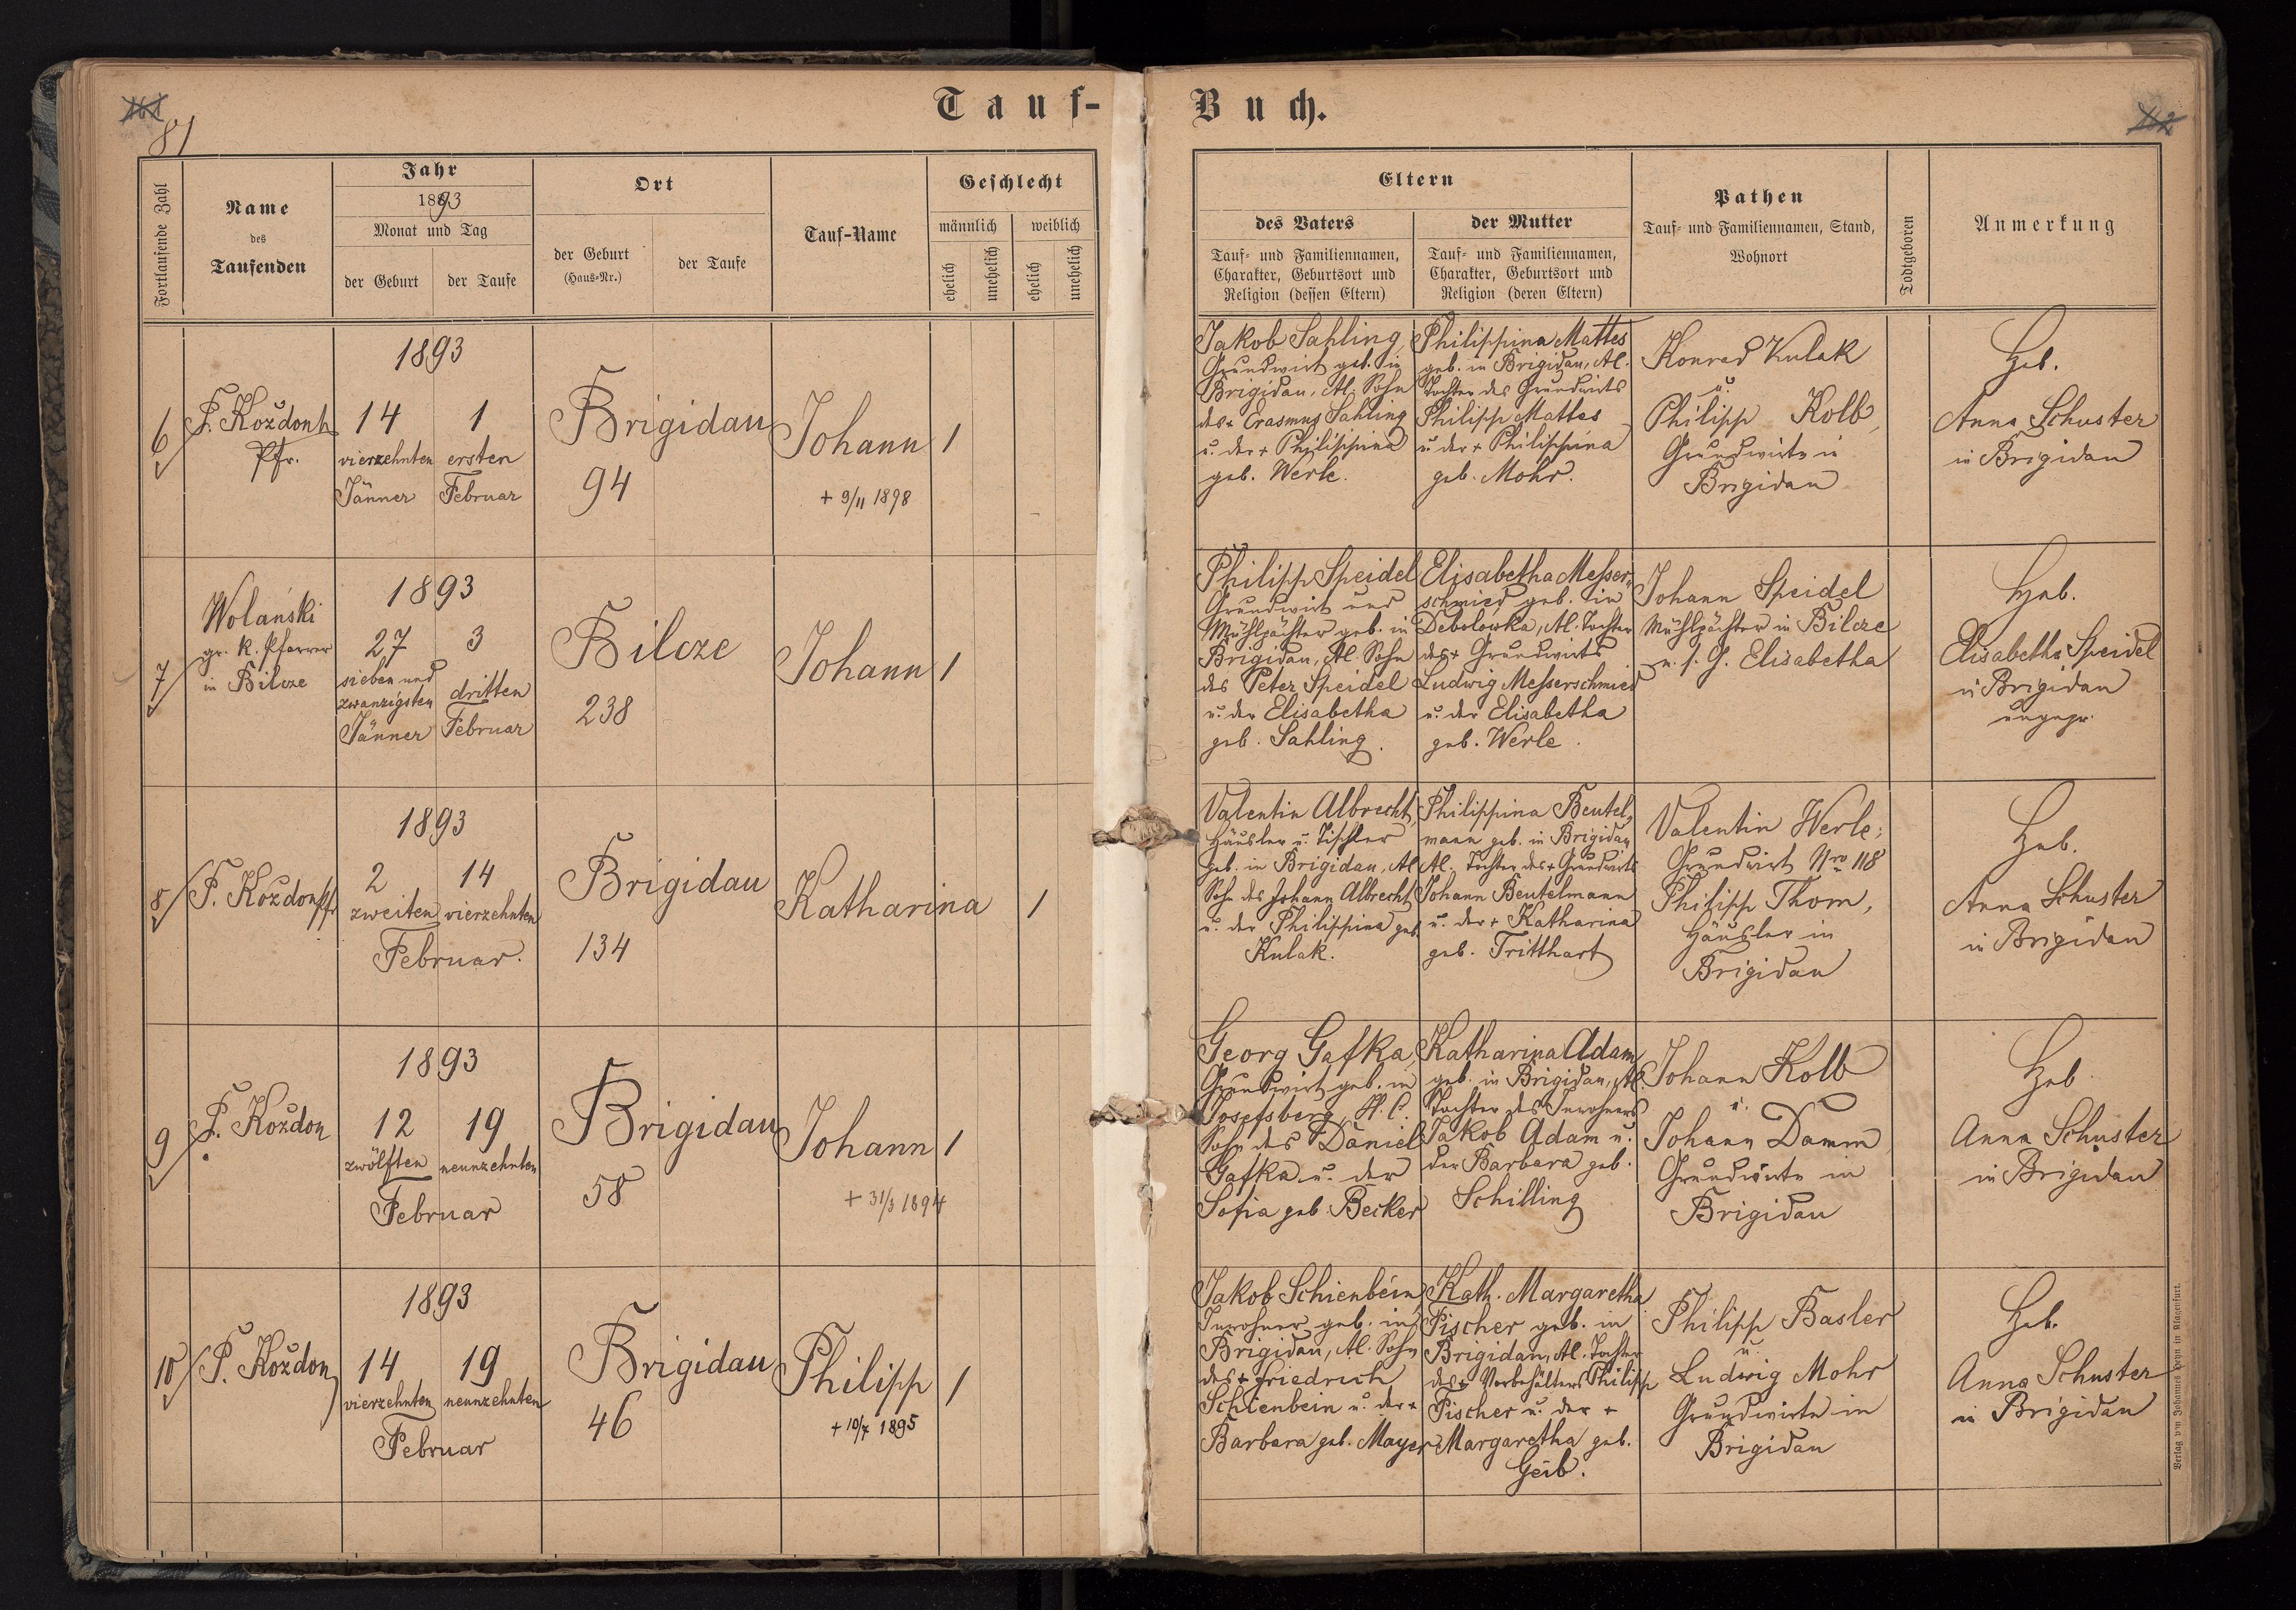 161
81
Tauf-
Buch.
162
Fortlaufende Zahl
Name
des
Taufenden
Jahr
1893
Monat und Tag
der Geburt
der Taufe
Ort
der Geburt
(Haus-Nr.)
der Taufe
Tauf-Name
Geschlecht
männlich
weiblich
ehelich
unehelich
ehelich
unehelich
Eltern
des Vaters
Tauf- und Familiennamen,
Charakter, Geburtsort und
Religion (dessen Eltern)
der Mutter
Tauf- und Familiennamen,
Charakter, Geburtsort und
Religion (deren Eltern)
Pathen
Tauf- und Familiennamen, Stand,
Wohnort
Todtgeboren
Anmerkung
6
Pfr.
1893
14
vierzehnten
Jänner
1
ersten
Februar
Brigidau
94
Johann
+ 9/11 1898
1
Jakob Sahling,
Grundwirt geb. in
Brigidau, Al. Sohn
des + Erasmus Sahling
u. der + Philippina
geb. Werle.
Philippina Mattes
geb. in Brigidau, Al.
Tochter des Grundwirts
Philipp Mattes
u der + Philippina
geb. Mohr.
Konrad Kulak
u.
Philipp Kolb,
Grundwirte in
Brigidau
Heb.
Anna Schuster
in Brigidau
7
Wolański
gr. k. Pfarrer
in Bilcze
1893
27
sieben und
zwanzigsten
Jänner
3
dritten
Februar
Bilcze
238
Johann
1
Philipp Speidel
Grundwirt und
Mühlpächter geb. in
Brigidau, Al. Sohn
des Peter Speidel
u. der Elisabetha
geb. Sahling.
Elisabetha Messer-
schmied geb. in
Debolowka, Al. Tochter
des + Grundwirts
Ludwig Messerschmied
u. der Elisabetha
geb. Werle.
Johann Speidel
Mühlpächter in Bilcze
u. s. G. Elisabetha
Heb.
Elisabetha Speidel
in Brigidau
ungepr.
8
P. Kożdon Pfr
1893
2
zweiten
14
vierzehnten
Februar.
Brigidau
134
Katharina
1
Valentin Albrecht,
Häusler u. Tischler
geb. in Brigidau, Al
Sohn des Johann Albrecht
u. der Philippina geb.
Kulak.
Philippina Beutel-
mann geb. in Brigidau
Al. Tochter des + Grundwirts
Johann Beutelmann
u. der + Katharina
geb. Tritthart
Valentin Werle;
Grundwirt Nro 118
Philipp Thom,
Häusler in
Brigidau
Heb.
Anna Schuster
in Brigidau
9
P. Kożdon
1893
12
zwölften
19
neunzehnten
Februar
Brigidau
58
Johann
+ 31/3 1894
1
Georg Gafka,
Grundwirt geb. in
Josefsberg, H. C.
Sohn des Daniel
Gafka u. der
Sofia geb. Becker
Katharina Adam,
geb. in Brigidau, Al.
Tochter des Inwohners
Jakob Adam u.
der Barbara geb.
Schilling
Johann Kolb
u.
Johann Damm
Grundwirte in
Brigidau
Heb
Anna Schuster
in Brigidau
10
P. Kożdon
1893
14
vierzehnten
19
neunzehnten
Februar
Brigidau
46
Philipp
+ 10/7 1895
1
Jakob Schienbein
Inwohner geb. in
Brigidau, Al. Sohn
des + Friedrich
Schienbein u. der +
Barbara geb. Mayer
Kath. Margaretha
Fischer geb. in
Brigidau, Al. Tochter
des + Vorbehälters Philipp
Fischer u. der +
Margaretha geb.
Geib.
Philipp Basler
u.
Ludwig Mohr
Grundwirte in
Brigidau
Heb.
Anna Schuster
in Brigidau
Verlag von Johannes Heyn in Klagenfurt.